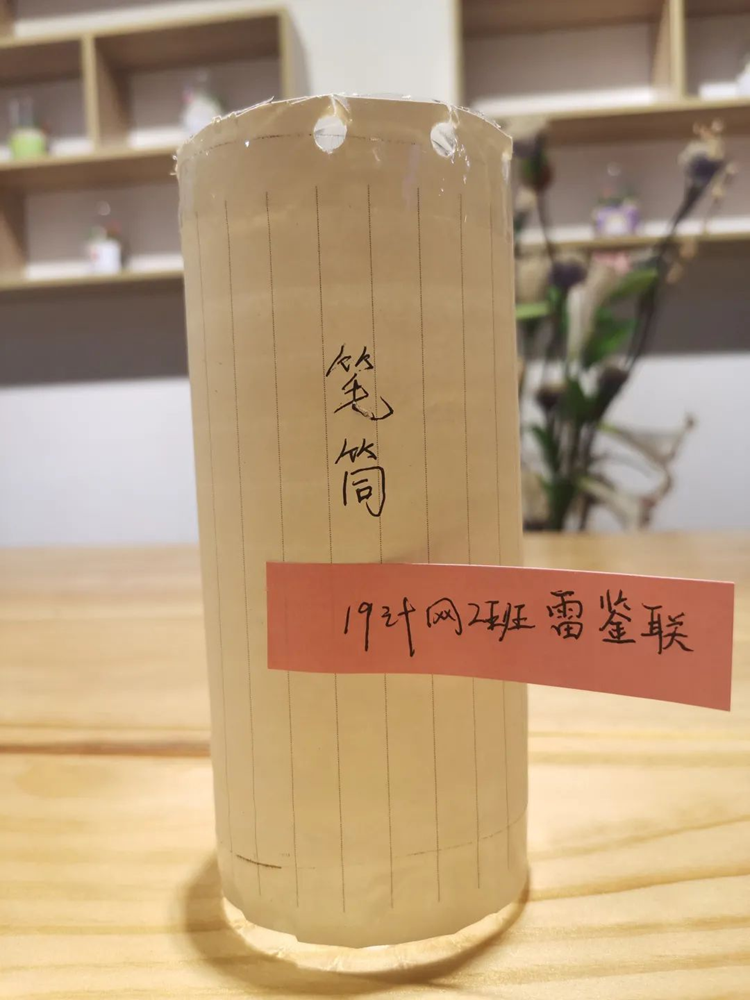 笔筒
19计网2班雷鉴联